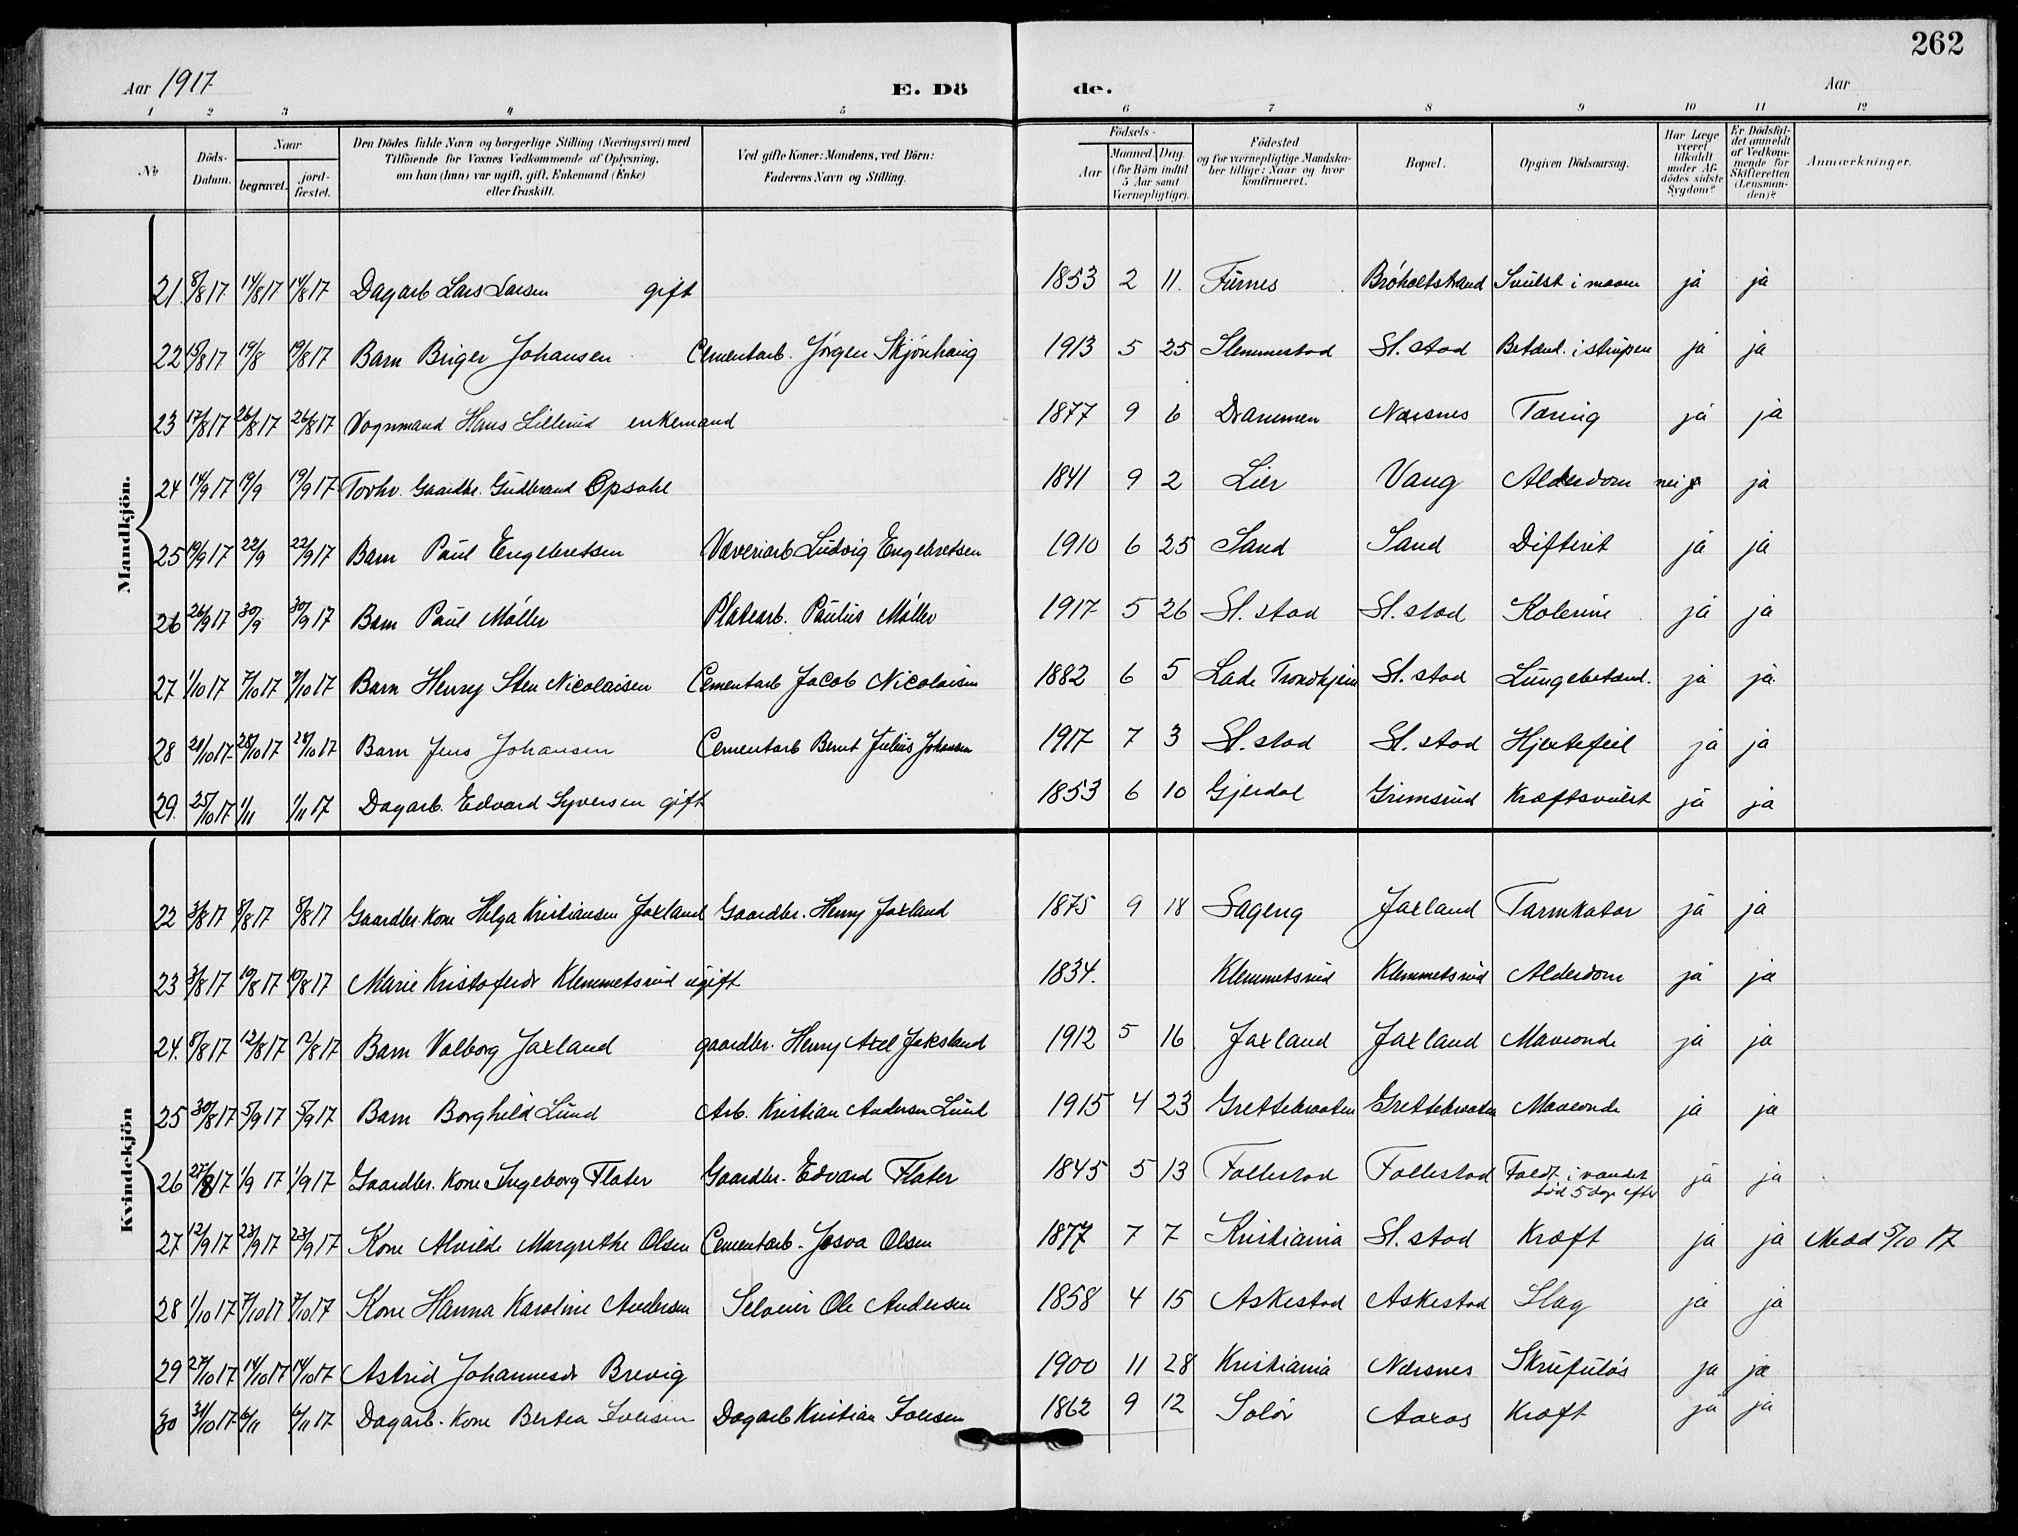 262
Aar 1917 E. Dö de. Aar
1 2 3 4 5 6 7 8 9 10 11 12
No
Döds-Datum.
Naar
begravet.
jord-fæstet.
Den Dödes fulde Navn og borgerlige Stilling (Næringsvei) med
Tilföiende for Voxnes Vedkommende af Oplysning,
om han (hun) var ugift, gift, Enkemand (Enke)
eller fraskilt.
Ved gifte Koner: Mandens, ved Börn:
Faderens Navn og Stilling.
Födsels-
Aar
Maaned. Dag.
(for Börn indtil
5 Aar samt
Værnepligtige).
Födested
og for værnepligtige Mandska-
ber tillige: Naar og hvor
konfirmeret.
Bopæl.
Opgiven Dödsaarsag.
Har Læge
været
tilkaldt
under Af-
dödes sidste
Sygdom?
Er Dödsfal-
det anmeldt
af Vedkom-
mende for
Skifteretten
(Lensman-
den)?
Anmærkninger.
Mandkjön.
21. 8/8 17 14/8 17 14/8 17 Dagarb Lars Larsen gift 1853 2 11. Furnes Bröholtstrand Svulst i maven ja ja
22 15/8 17 19/8 19/8 17 Barn Birger Johansen Cementarb. Jörgen Skjönhaug 1913 5 25 Slemmestad Sl. stad Betænd. i strupen ja ja
23 17/8 17 26/8 17 26/8 17 Vognmand Hans Lillerud enkemand 1877 9 6 Drammen Nærsnes Tæring ja ja
24 14/9 17 19/9 19/9 17 Forhv. Gaardbr. Gudbrand Opsahl 1841 9 2 Lier Vang Alderdom nei ja
25 19/9 17 22/9 22/9 17 Barn Paul Engebretsen Væveriarb Ludvig Engebretsen 1910 6 25 Sand Sand Difterit ja ja
26 26/9 17 30/9 30/9 17 Barn Paul Möller Platearb. Paulus Möller 1917 5 26 Sl. stad Sl. stad Kolerine ja ja
27 1/10 17 7/10 17 7/10 17 Barn Henry Sten Nicolaisen Cementarb Jacob Nicolaisen 1882 6 5 Lade Trondhjem Sl. stad Lungebetænd. ja ja
28 21/10 17 28/10 17 28/10 17 Barn Jens Johansen Cementarb Bernt Julius Johansen 1917 7 3 Sl. stad Sl. stad Hjertefeil ja ja
29. 25/10 17 1/11 1/11 17 Dagarb. Edvard Syversen gift 1853 6 10 Gjerdal Grimsrud Kræftsvulst ja ja
Kvindekjön
22 3/8 17 8/8 17 8/8 17 Gaardbr. Kone Helga Kristiansen Jaxland Gaardbr. Henry Jaxland 1875 9 18 Sageng Jaxland Tarmkatar ja ja
23 3/8 17 10/8 17 10/8 17 Marie Kristofersdr Klemmetsrud ugift 1834. Klemmetsrud Klemmetsrud Alderdom ja ja
24. 8/8 17 12/8 17 12/8 17 Barn Valborg Jaxland gaardbr. Henry Axel Jaksland 1912 5 16 Jaxland Jaxland Maveonde ja ja
25 30/8 17 5/9 17 5/9 17 Barn Borghild Lund Arb. Kristian Andersen Lund 1915 4 23 Grettebraaten Grettebraaten Maveonde ja ja
26 27/8 17 1/9 17 1/9 17 Gaardbr. Kone Ingeborg Flater Gaardbr. Edvard Flater 1845 5 13 Follestad Follestad Faldt i vandet
död 5 dage efter ja ja
27 12/9 17 23/9 17 23/9 17 Kone Alvilde Margrethe Olsen Cementarb. Josva Olsen 1877 7 7 Kristiania Sl. stad Kræft ja ja Medd 5/10 17
28 1/10 17 7/10 17 7/10 17 Kone Hanna Karoline Andersen Selveier Ole Andersen 1858 4 15 Askestad Askestad Slag ja ja
29 27/10 17 14/10 17 14/10 17 Astrid Johannesdr Brevig 1900 11 28 Kristiania Nærsnes Skrufulös ja ja
30 31/10 17 6/11 6/11 17 Dagarb. Kone Bertea Iversen Dagarb Kristian Iversen 1862 9 12 Solör Aaros Kræft ja ja